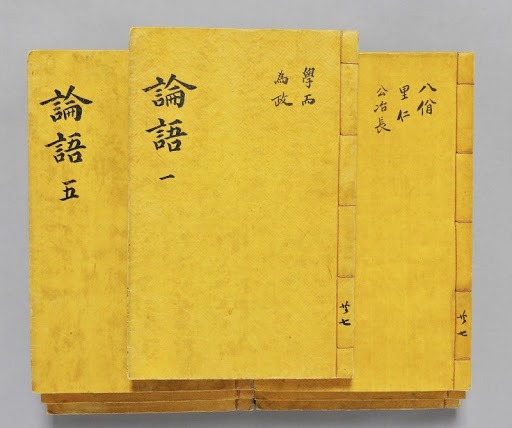 論語 五
論語 一
學而
為政
共七
八佾
里仁
公冶長
共七